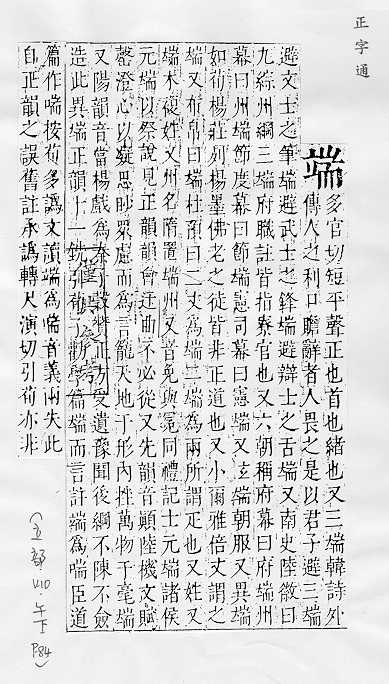 正字通
端
多官切短平聲正也首也緒也又三端韓詩外
傳人之利口贍辭者人畏之是以君子避三端
避文士之筆端避武士之鋒端避辯士之舌端又南史陸倣曰
九綜州綱三端府職註皆指寮官也又六朝稱府幕曰府端州
幕曰州端節度幕曰節端憲司幕曰憲端又玄端朝服又異端
如荀楊莊列楊墨佛老之徒皆非正道也又小爾雅倍丈謂之
端又布帛曰端杜預曰二丈為端二端為兩所謂疋也又姓又
端木複姓又州名隋置端州又音免與冕同禮記士元端諸侯
元端以祭說見正韻韻會迂曲不必從又先韻音顚陸機文賦
罄澄心以凝思眇眾慮而為言籠天地于形內挫萬物于毫端
又陽韻音當楊戲為
受遺豫聞後綱不陳不僉
造此異端正韻十一
篇端而言註端為喘臣道
篇作喘按荀多譌文讀端為喘音義兩失此
自正韻之誤舊註承譌轉尺演切引荀亦非
(立部 V10·午下 P84)